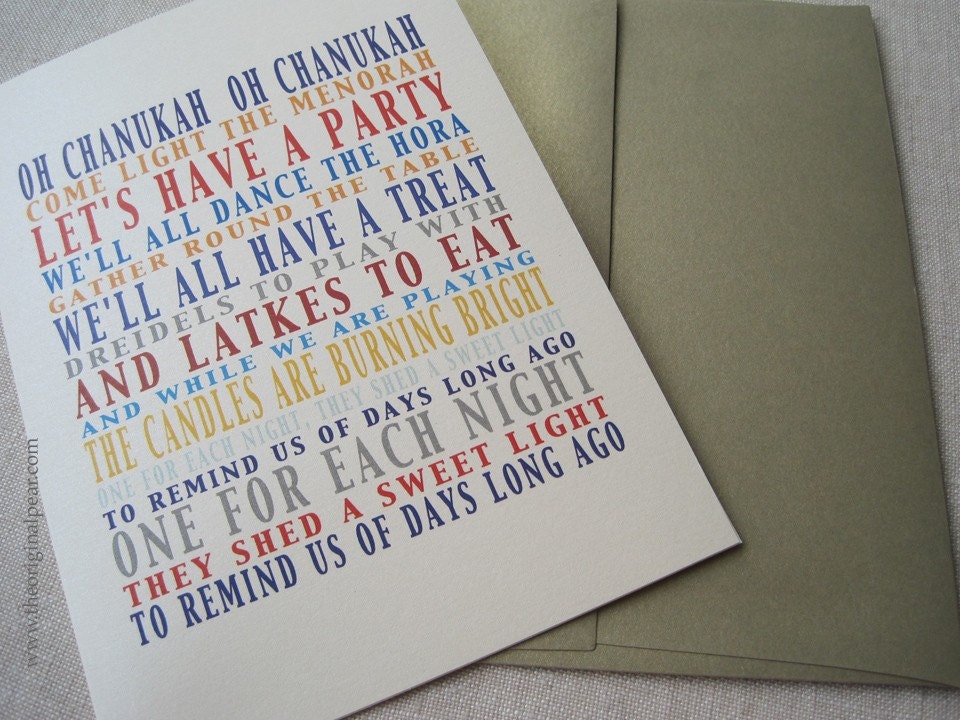 OH CHANUKAH OH CHANUKAH
COME LIGHT THE MENORAH
LET'S HAVE A PARTY
WE'LL ALL DANCE THE HORA
GATHER ROUND THE TABLE
WE'LL ALL HAVE A TREAT
DREIDELS TO PLAY WITH
AND LATKES TO EAT
AND WHILE WE ARE PLAYING
THE CANDLES ARE BURNING BRIGHT
ONE FOR EACH NIGHT, THEY SHED A SWEET LIGHT
TO REMIND US OF DAYS LONG AGO
ONE FOR EACH NIGHT
THEY SHED A SWEET LIGHT
TO REMIND US OF DAYS LONG AGO
www.theoriginalpear.com